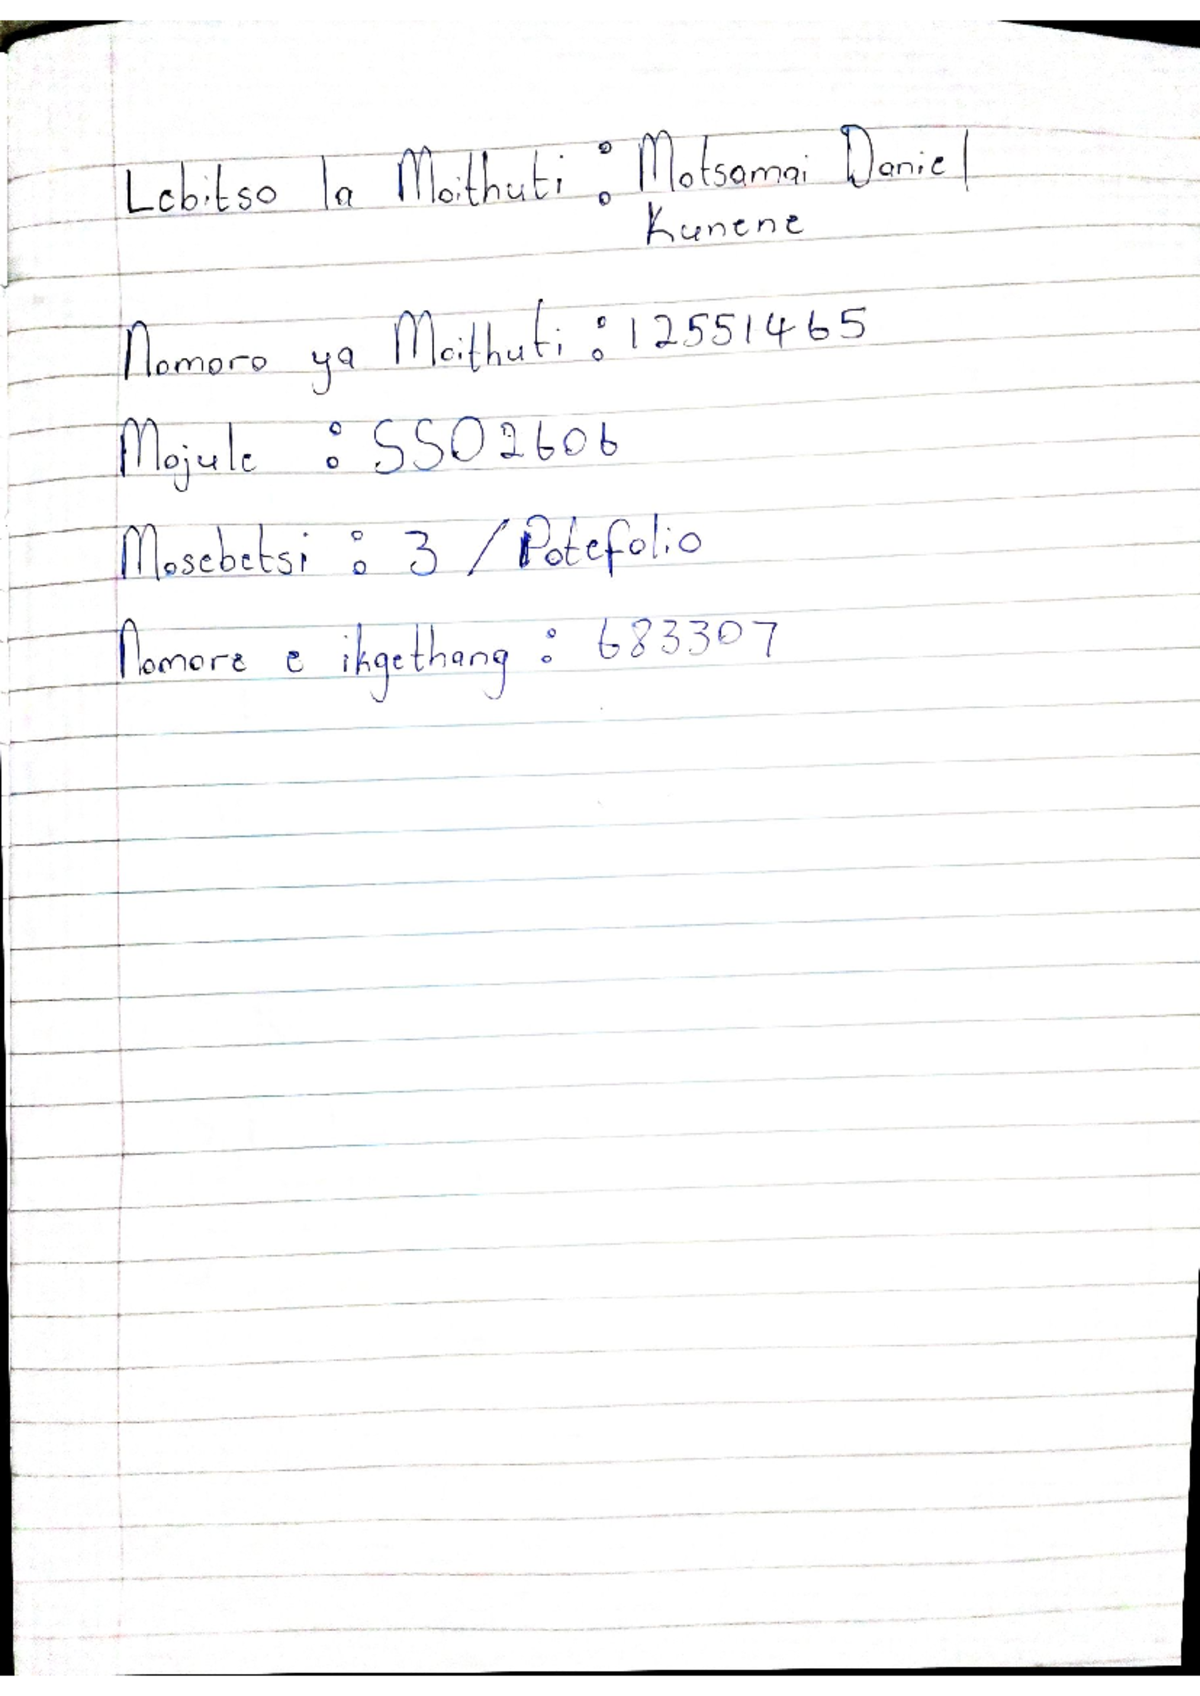 Lebitso la Moithuti : Motsamai Daniel
Kunene
Nomoro ya Moithuti : 12551465
Mojule : SSO2606
Mosebetsi : 3 / Potefolio
Nomore e ikgethang : 683307